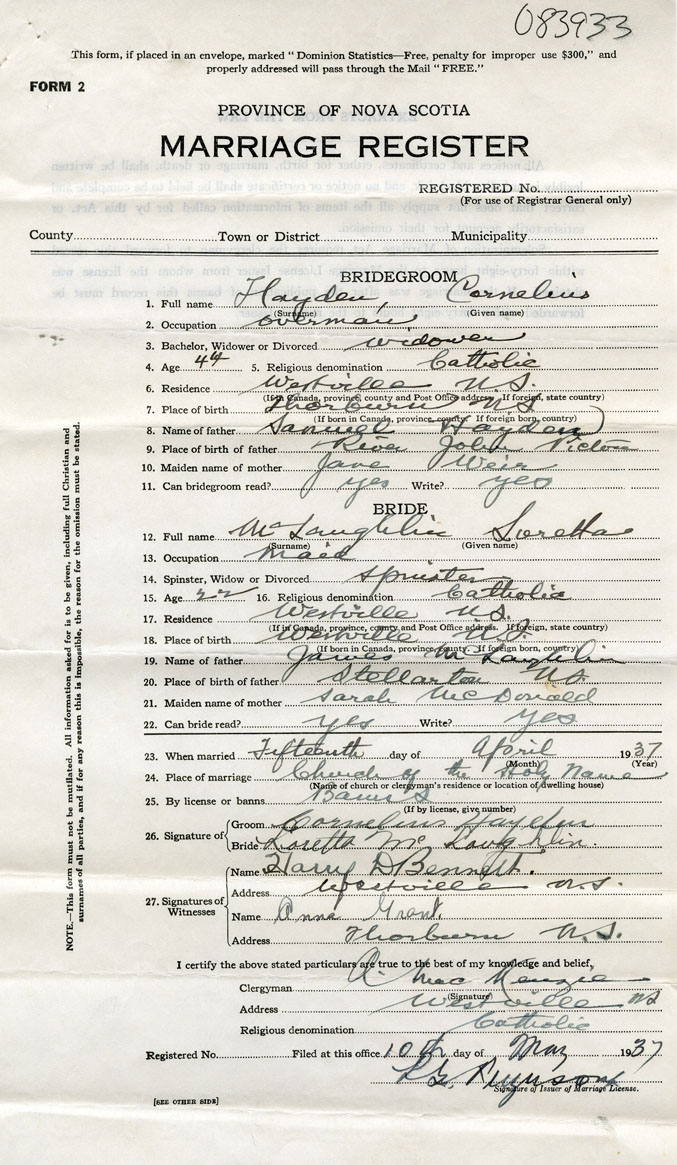 083933
This form, if placed in an envelope, marked "Dominion Statistics—Free, penalty for improper use $300," and
properly addressed will pass through the Mail "FREE."
FORM 2
PROVINCE OF NOVA SCOTIA
MARRIAGE REGISTER
REGISTERED No.
(For use of Registrar General only)
County Town or District Municipality
BRIDEGROOM
1. Full name Hayden, Cornelius
(Surname) (Given name)
2. Occupation overman
3. Bachelor, Widower or Divorced widower
4. Age 44 5. Religious denomination Catholic
6. Residence Westville N.S.
(If in Canada, province, county and Post Office address. If foreign, state country)
7. Place of birth Thorburn N.S.
(If born in Canada, province county. If foreign born, country)
8. Name of father Samuel Hayden
9. Place of birth of father River John Pictou
10. Maiden name of mother Jane Weir
11. Can bridegroom read? yes Write? yes
BRIDE
12. Full name McLaughlin Loretta
(Surname) (Given name)
13. Occupation maid
14. Spinster, Widow or Divorced spinster
15. Age 22 16. Religious denomination Catholic
17. Residence Westville N.S.
(If in Canada, province, county, and Post Office address. If foreign, state country)
18. Place of birth Westville N.S.
(If born in Canada, province, county. If foreign born, country)
19. Name of father James McLaughlin
20. Place of birth of father Stellarton NS
21. Maiden name of mother Sarah McDonald
22. Can bride read? yes Write? yes
23. When married Fifteenth day of April 1937
(Month) (Year)
24. Place of marriage Church of the Holy Name
(Name of church or clergyman's residence or location of dwelling house)
25. By license or banns Banns
(If by license, give number)
26. Signature of Groom Cornelius Hayden
Bride Loretta Mc Laughlin.
27. Signatures of Witnesses
Name Harry D Bennett.
Address Westville N.S.
Name Anna Grant.
Address Thorburn N.S.
I certify the above stated particulars are true to the best of my knowledge and belief,
Clergyman A. MacKenzie
(Signature)
Address Westville NS
Religious denomination Catholic
Registered No. Filed at this office 10th day of May 1937
Signature of Issuer of Marriage License.
[SEE OTHER SIDE]
NOTE.—This form must not be mutilated. All information asked for is to be given, including full Christian and
surnames of all parties, and if for any reason this is impossible, the reason for the omission must be stated.